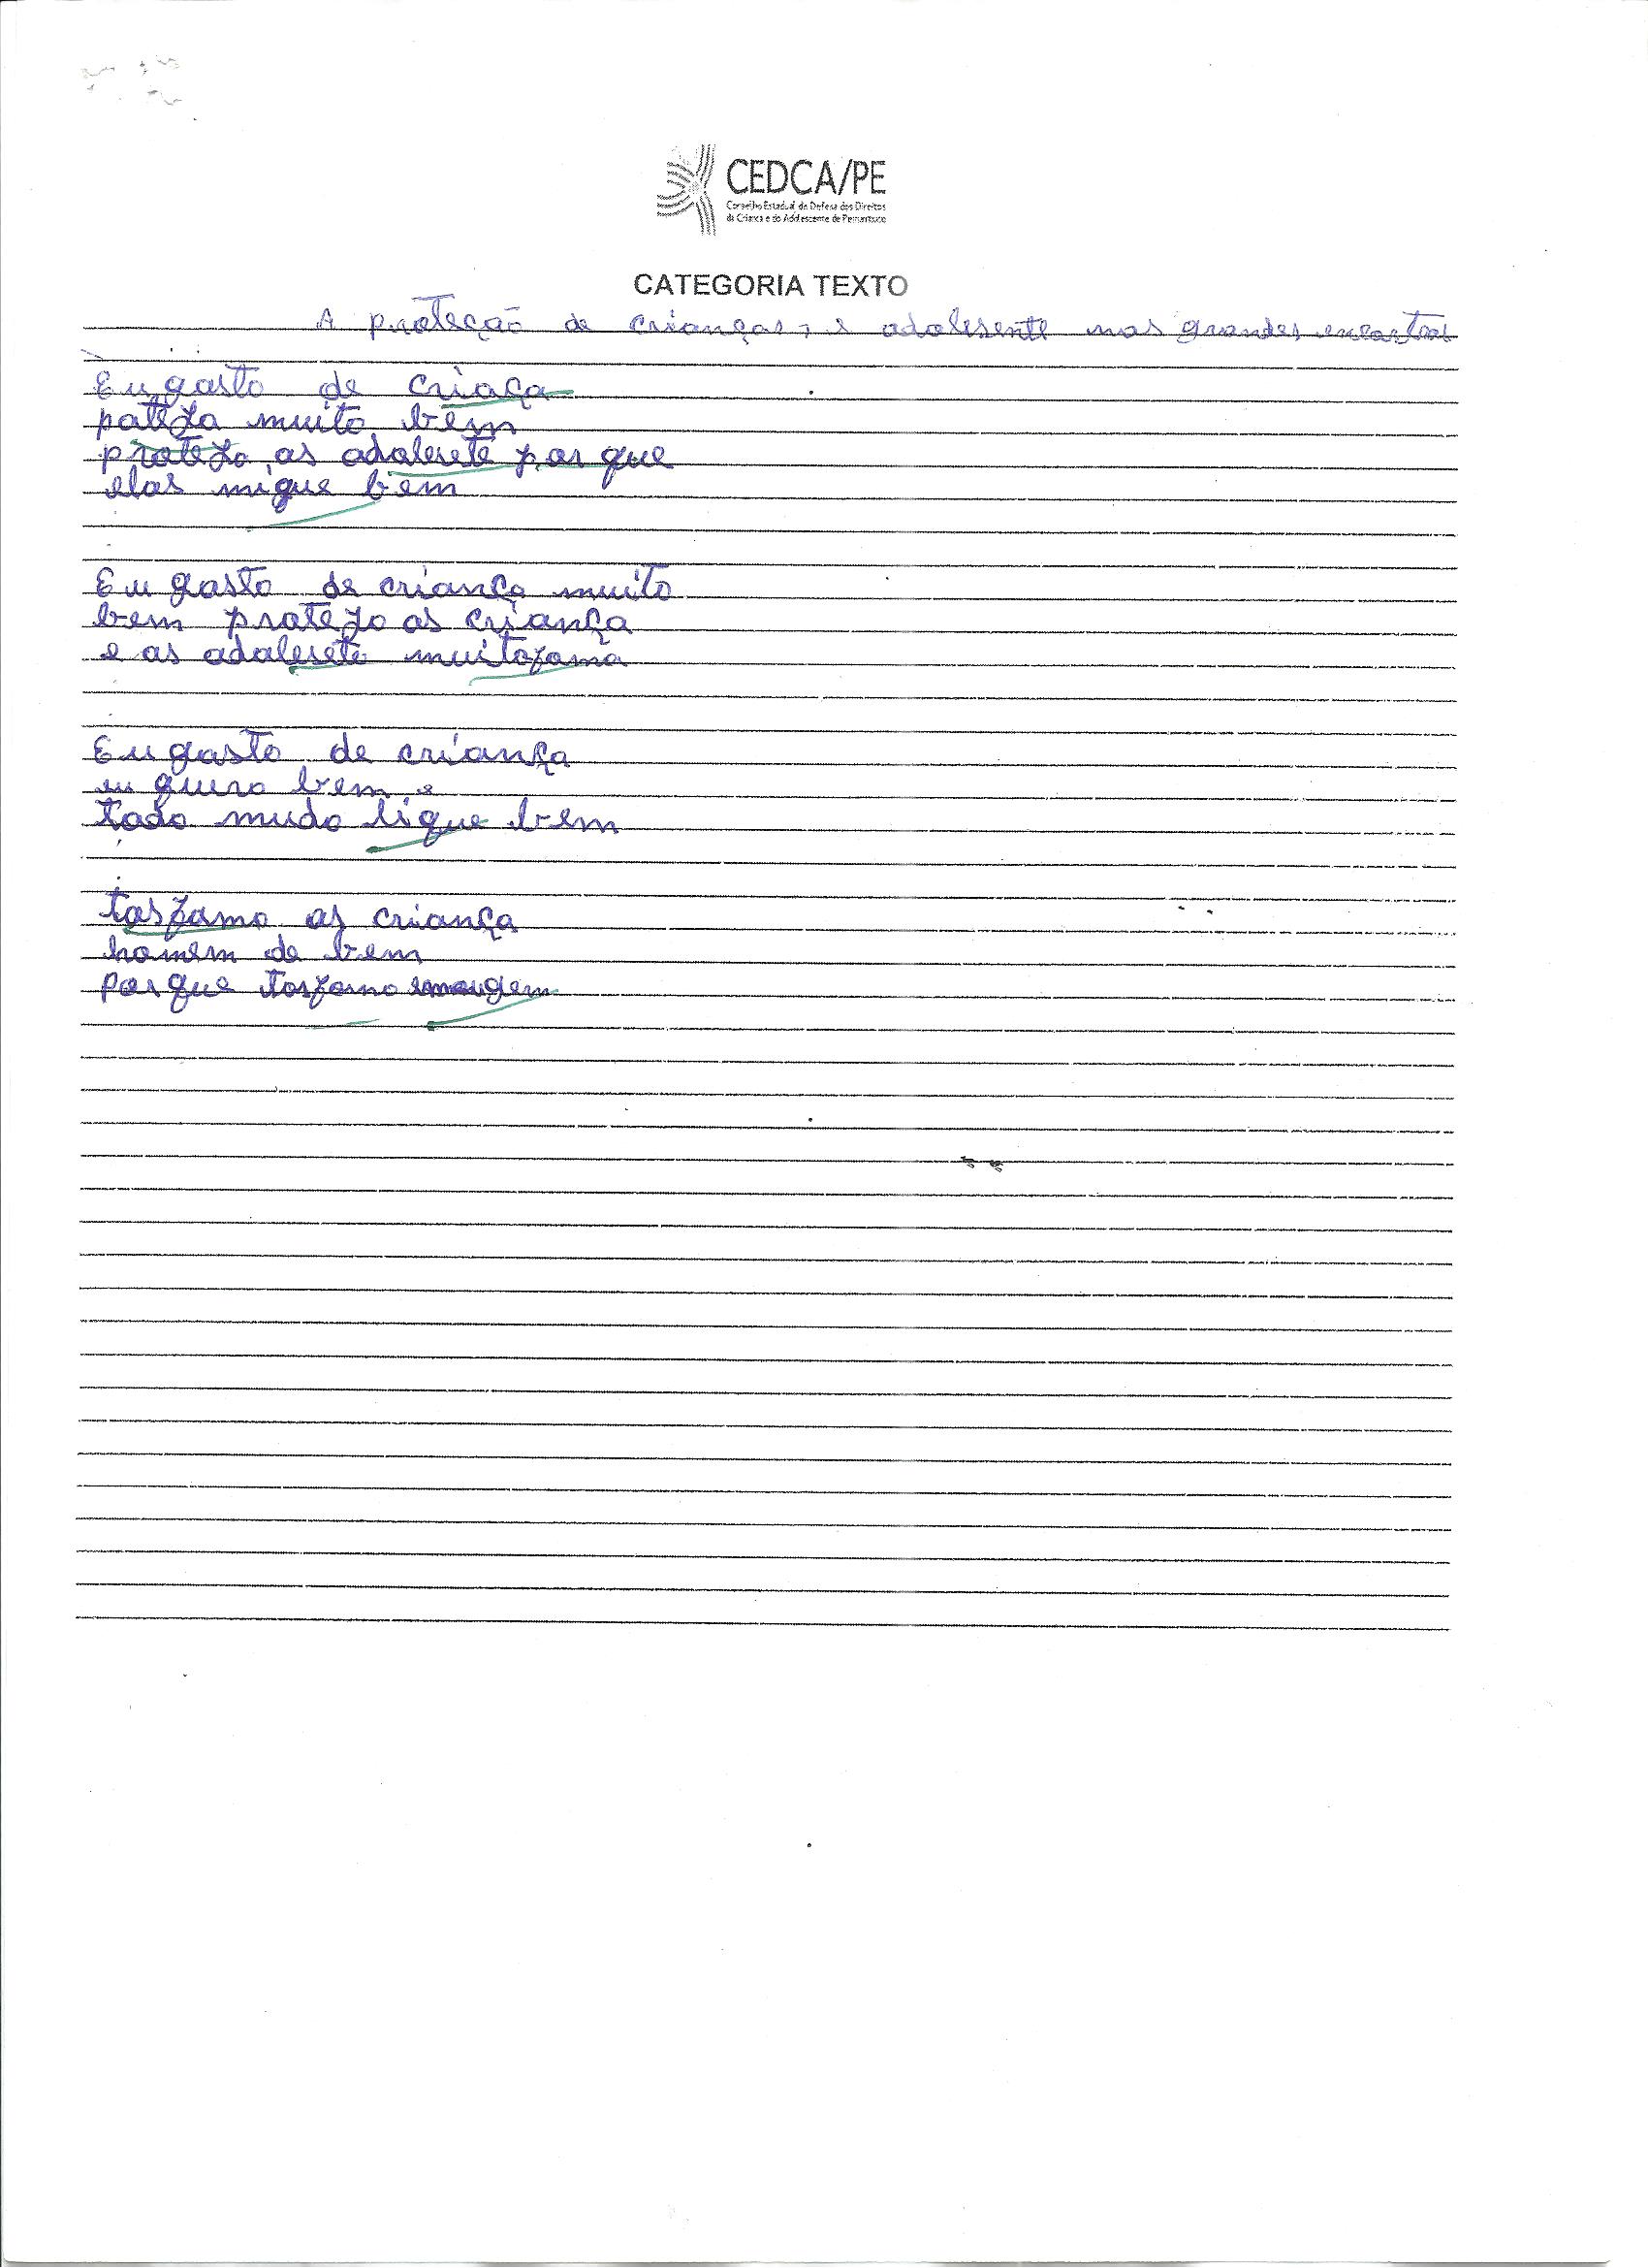 CEDCA/PE
Conselho Estadual de Defesa dos Direitos
da Criança e do Adolescente de Pernambuco
CATEGORIA TEXTO
A proteção de crianças, e adolesente nas grandes
Eu gosto de criaça
patejo muito bem
protejo as adolesete por que
elas migue bem
Eu gosto de criança muito
bem protejo as criança
e as adolesete muitofama
Eu gosto de criança
eu quero bem e
todo mudo ligue bem
tosfamo as criança
homem de bem
por que tosfamo